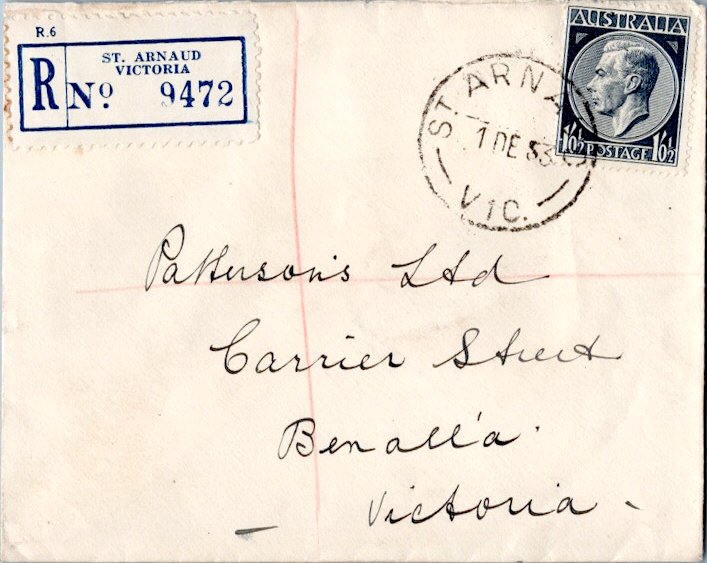 R.6
ST. ARNAUD
VICTORIA
R No 9472
ST. ARNA
1 DE 53
VIC.
AUSTRALIA
1/0½ POSTAGE 1/0½
Patterson's Ltd
Carrier Street
Benalla
Victoria